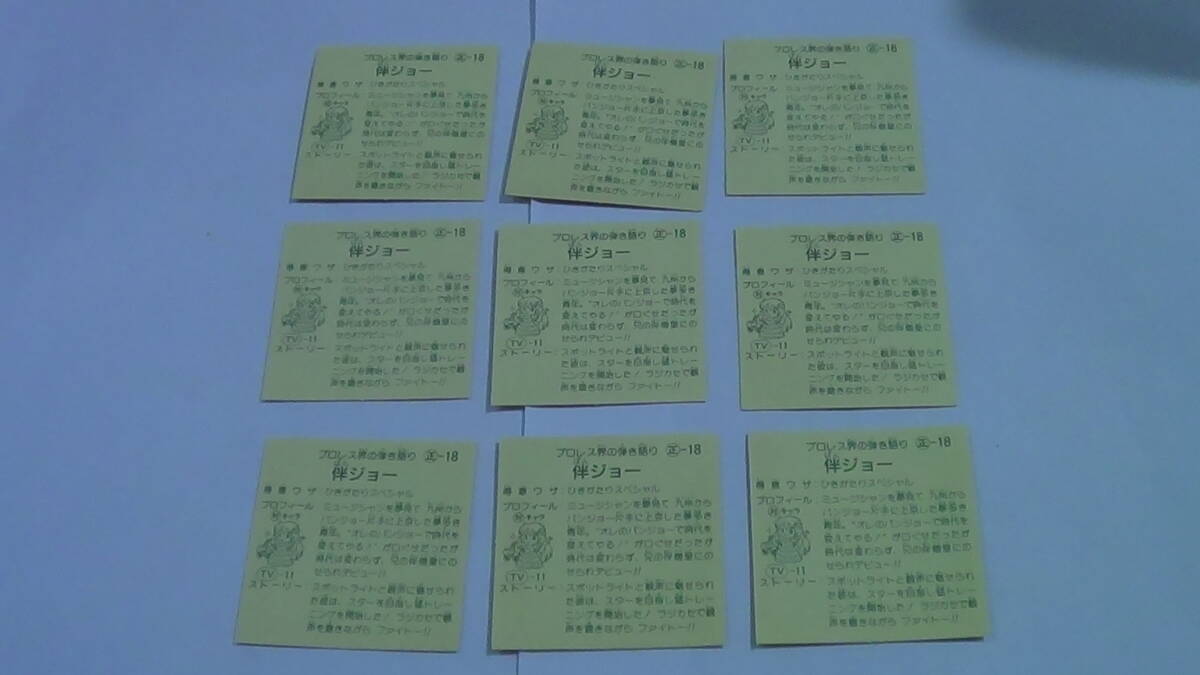 プロレス界の弾き語り 正-18
伴ジョー
得意ワザ ひきがたりスペシャル
プロフィール ミュージシャンを夢見て 九州から
キャラ バンジョー片手に上京した夢多き
青年。"オレのバンジョーで時代を
変えてやる!"が口ぐせだったが
時代は変わらず、兄の伴
TV-11 せられデビュー!!
ストーリー スポットライトと歓声に魅せられ
た彼は、スターを目指し猛トレー
ニングを開始した! ラジカセで歓
声を聴きながら ファイトー!!
プロレス界の弾き語り 正-18
伴ジョー
得意ワザ ひきがたりスペシャル
プロフィール ミュージシャンを夢見て 九州から
キャラ バンジョー片手に上京した夢多き
青年。"オレのバンジョーで時代を
変えてやる!"が口ぐせだったが
時代は変わらず、兄の伴
TV-11 せられデビュー!!
ストーリー スポットライトと歓声に魅せられ
た彼は、スターを目指し猛トレー
ニングを開始した! ラジカセで歓
声を聴きながら ファイトー!!
プロレス界の弾き語り 正-18
伴ジョー
得意ワザ ひきがたりスペシャル
プロフィール ミュージシャンを夢見て 九州から
キャラ バンジョー片手に上京した夢多き
青年。"オレのバンジョーで時代を
変えてやる!"が口ぐせだったが
時代は変わらず、兄の伴
TV-11 せられデビュー!!
ストーリー スポットライトと歓声に魅せられ
た彼は、スターを目指し猛トレー
ニングを開始した! ラジカセで歓
声を聴きながら ファイトー!!
プロレス界の弾き語り 正-18
伴ジョー
得意ワザ ひきがたりスペシャル
プロフィール ミュージシャンを夢見て 九州から
キャラ バンジョー片手に上京した夢多き
青年。"オレのバンジョーで時代を
変えてやる!"が口ぐせだったが
時代は変わらず、兄の伴
TV-11 せられデビュー!!
ストーリー スポットライトと歓声に魅せられ
た彼は、スターを目指し猛トレー
ニングを開始した! ラジカセで歓
声を聴きながら ファイトー!!
プロレス界の弾き語り 正-18
伴ジョー
得意ワザ ひきがたりスペシャル
プロフィール ミュージシャンを夢見て 九州から
キャラ バンジョー片手に上京した夢多き
青年。"オレのバンジョーで時代を
変えてやる!"が口ぐせだったが
時代は変わらず、兄の伴
TV-11 せられデビュー!!
ストーリー スポットライトと歓声に魅せられ
た彼は、スターを目指し猛トレー
ニングを開始した! ラジカセで歓
声を聴きながら ファイトー!!
プロレス界の弾き語り 正-18
伴ジョー
得意ワザ ひきがたりスペシャル
プロフィール ミュージシャンを夢見て 九州から
キャラ バンジョー片手に上京した夢多き
青年。"オレのバンジョーで時代を
変えてやる!"が口ぐせだったが
時代は変わらず、兄の伴
TV-11 せられデビュー!!
ストーリー スポットライトと歓声に魅せられ
た彼は、スターを目指し猛トレー
ニングを開始した! ラジカセで歓
声を聴きながら ファイトー!!
プロレス界の弾き語り 正-18
伴ジョー
得意ワザ ひきがたりスペシャル
プロフィール ミュージシャンを夢見て 九州から
キャラ バンジョー片手に上京した夢多き
青年。"オレのバンジョーで時代を
変えてやる!"が口ぐせだったが
時代は変わらず、兄の伴
TV-11 せられデビュー!!
ストーリー スポットライトと歓声に魅せられ
た彼は、スターを目指し猛トレー
ニングを開始した! ラジカセで歓
声を聴きながら ファイトー!!
プロレス界の弾き語り 正-18
伴ジョー
得意ワザ ひきがたりスペシャル
プロフィール ミュージシャンを夢見て 九州から
キャラ バンジョー片手に上京した夢多き
青年。"オレのバンジョーで時代を
変えてやる!"が口ぐせだったが
時代は変わらず、兄の伴
TV-11 せられデビュー!!
ストーリー スポットライトと歓声に魅せられ
た彼は、スターを目指し猛トレー
ニングを開始した! ラジカセで歓
声を聴きながら ファイトー!!
プロレス界の弾き語り 正-18
伴ジョー
得意ワザ ひきがたりスペシャル
プロフィール ミュージシャンを夢見て 九州から
キャラ バンジョー片手に上京した夢多き
青年。"オレのバンジョーで時代を
変えてやる!"が口ぐせだったが
時代は変わらず、兄の伴
TV-11 せられデビュー!!
ストーリー スポットライトと歓声に魅せられ
た彼は、スターを目指し猛トレー
ニングを開始した! ラジカセで歓
声を聴きながら ファイトー!!